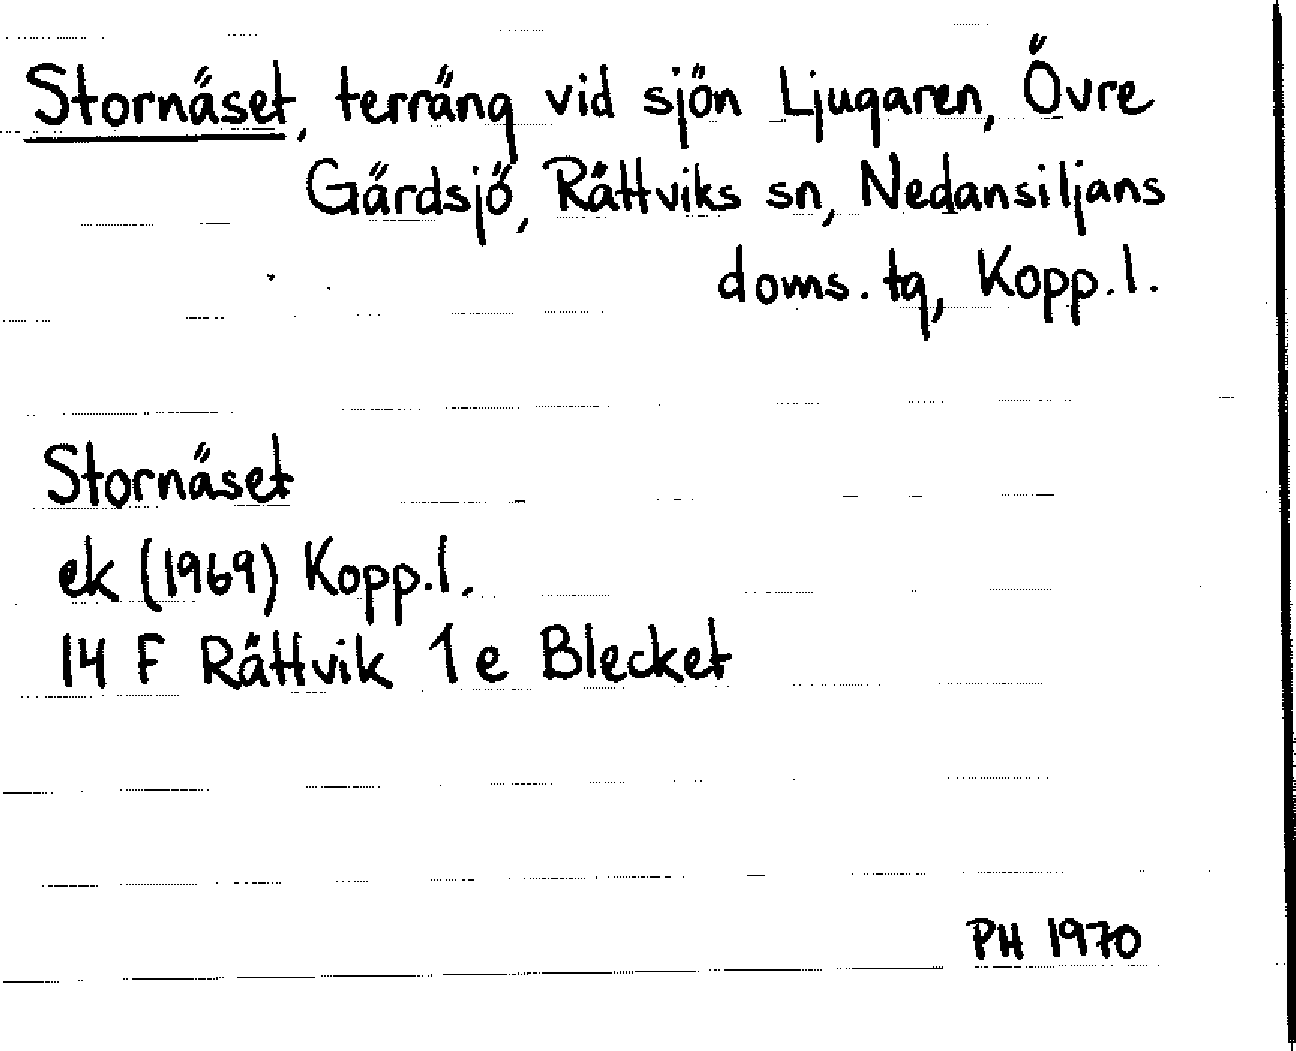 Stornäset, terräng vid sjön Ljugaren, Övre
Gärdsjö, Rättviks sn, Nedansiljans
doms. tg, Kopp. l.
Stornäset
ek (1969) Kopp. l.
14 F Rättvik 1 e Blecket
PH 1970